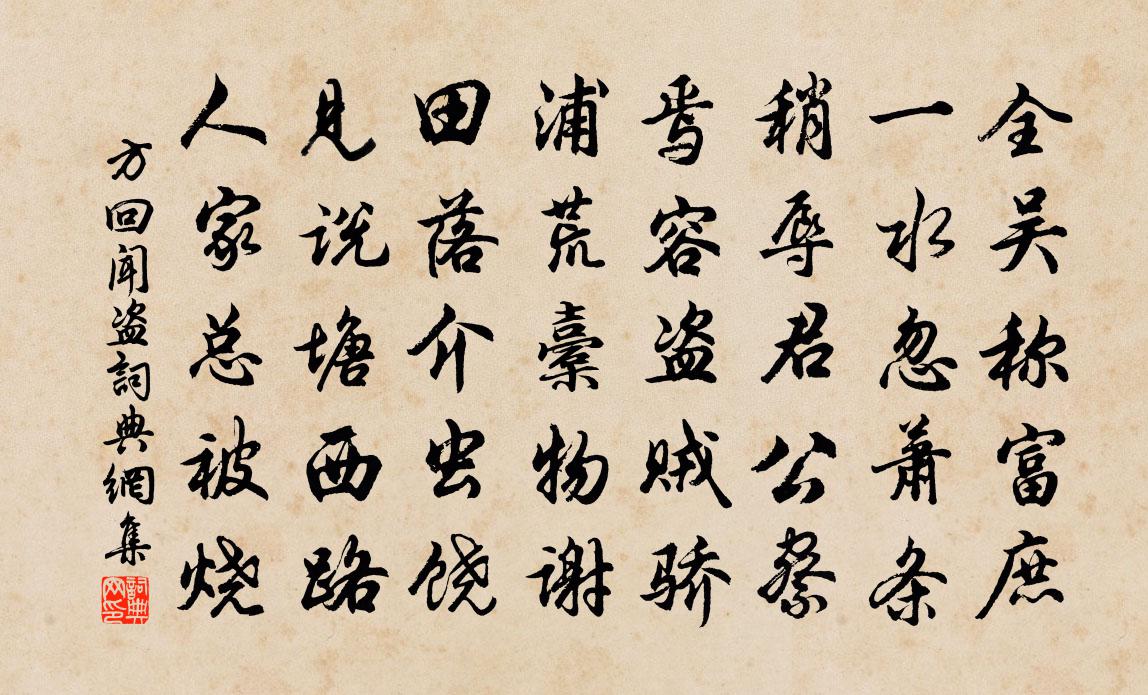 全吴称富庶
一水忽萧条
稍辱君公察
焉容盗贼骄
浦荒橐物谢
田落介虫饶
见说塘西路
人家总被烧
方回闻盗詞典網集
詞典网印